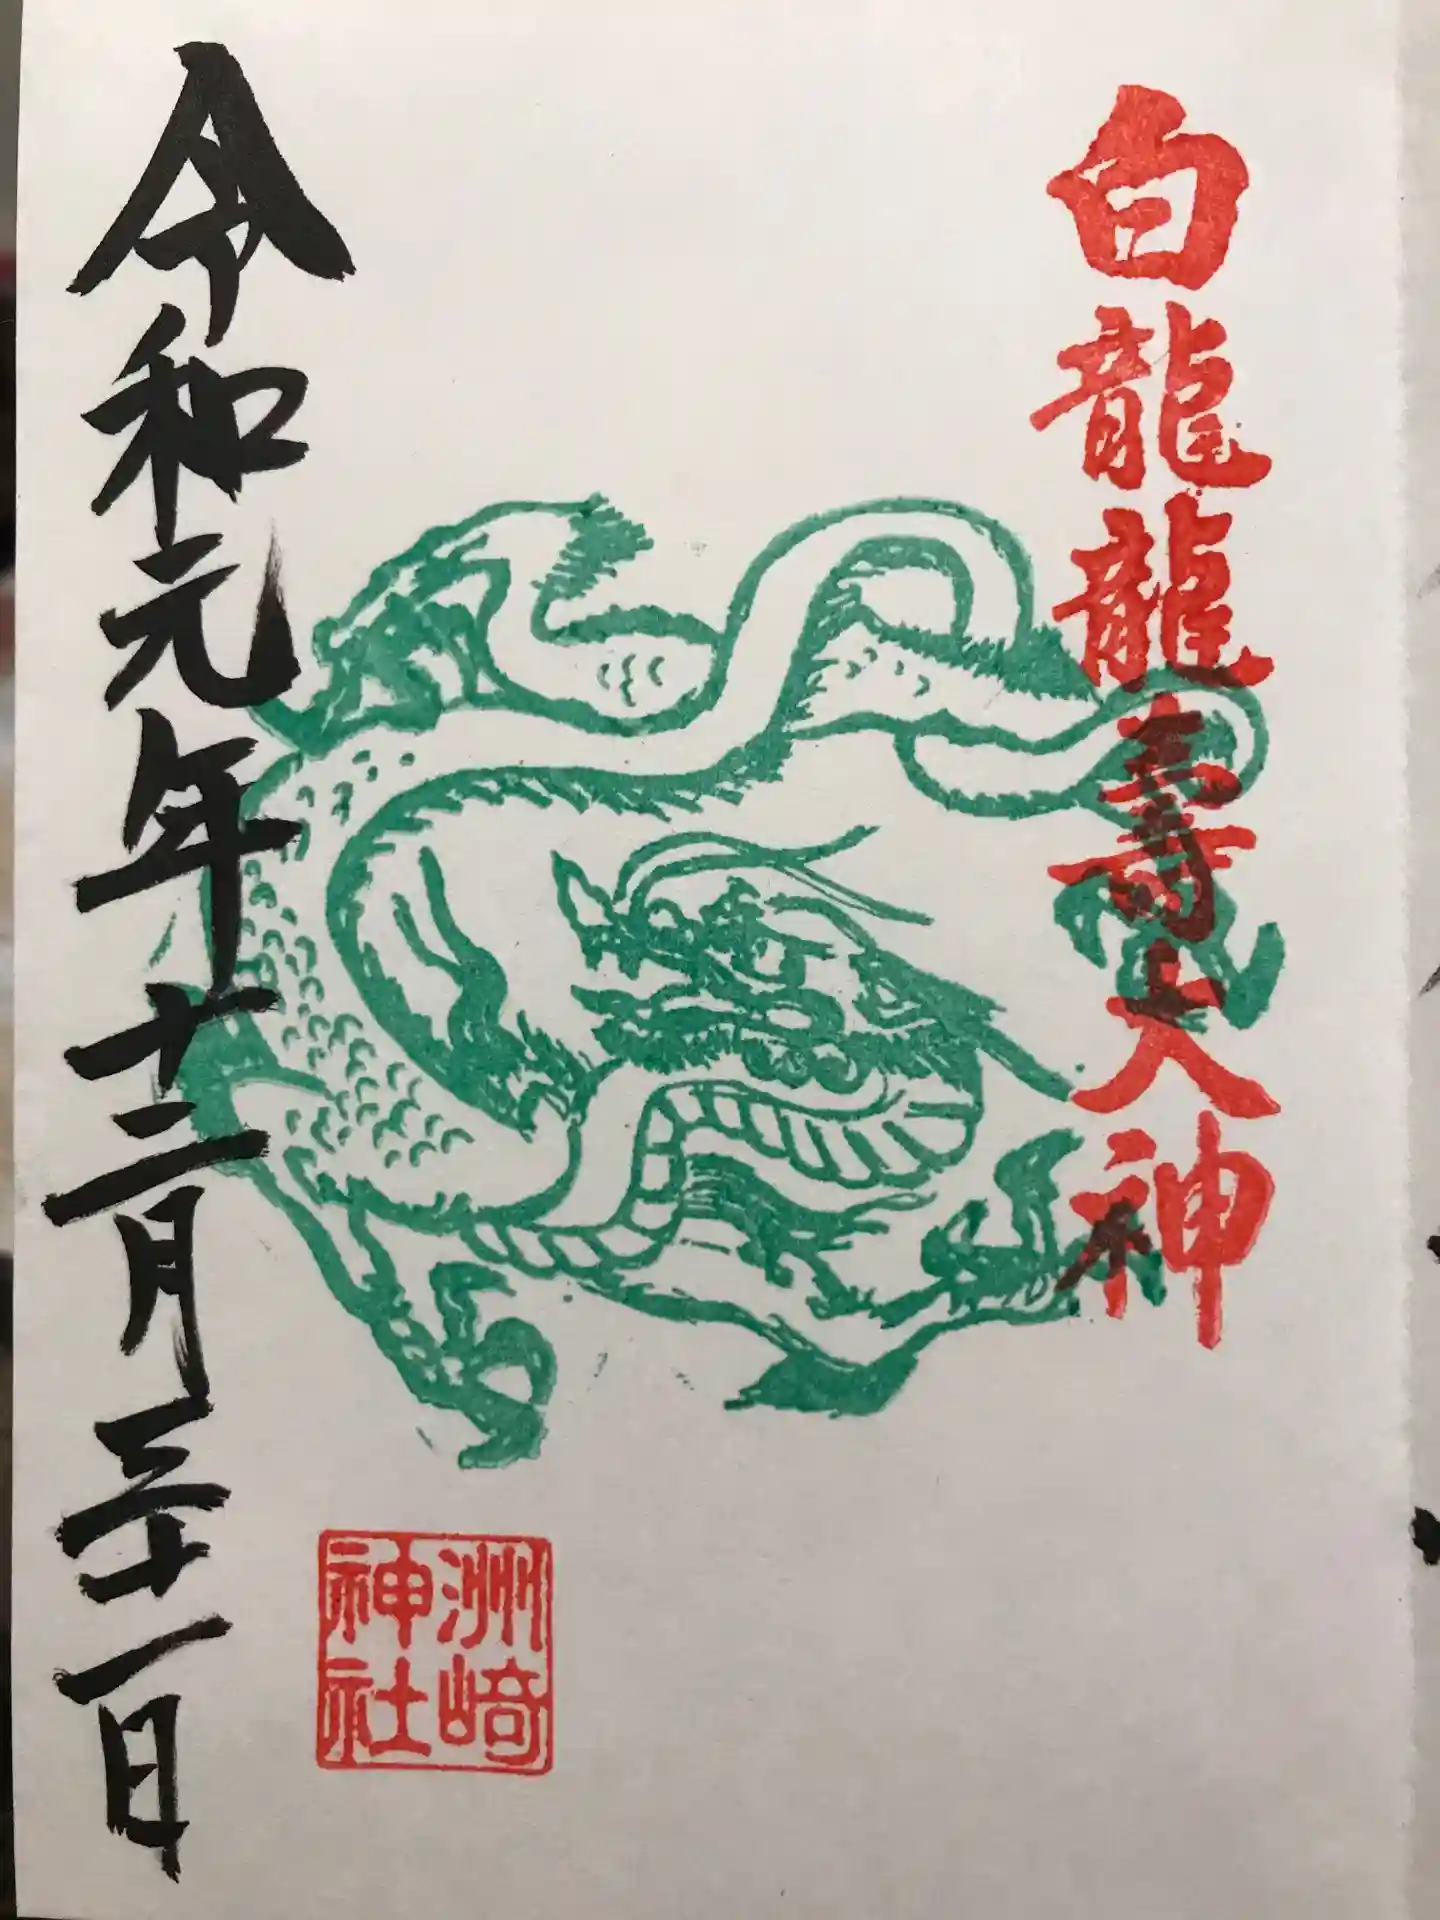 白龍龍壽大神
洲﨑
神社
令和元年十二月三十一日